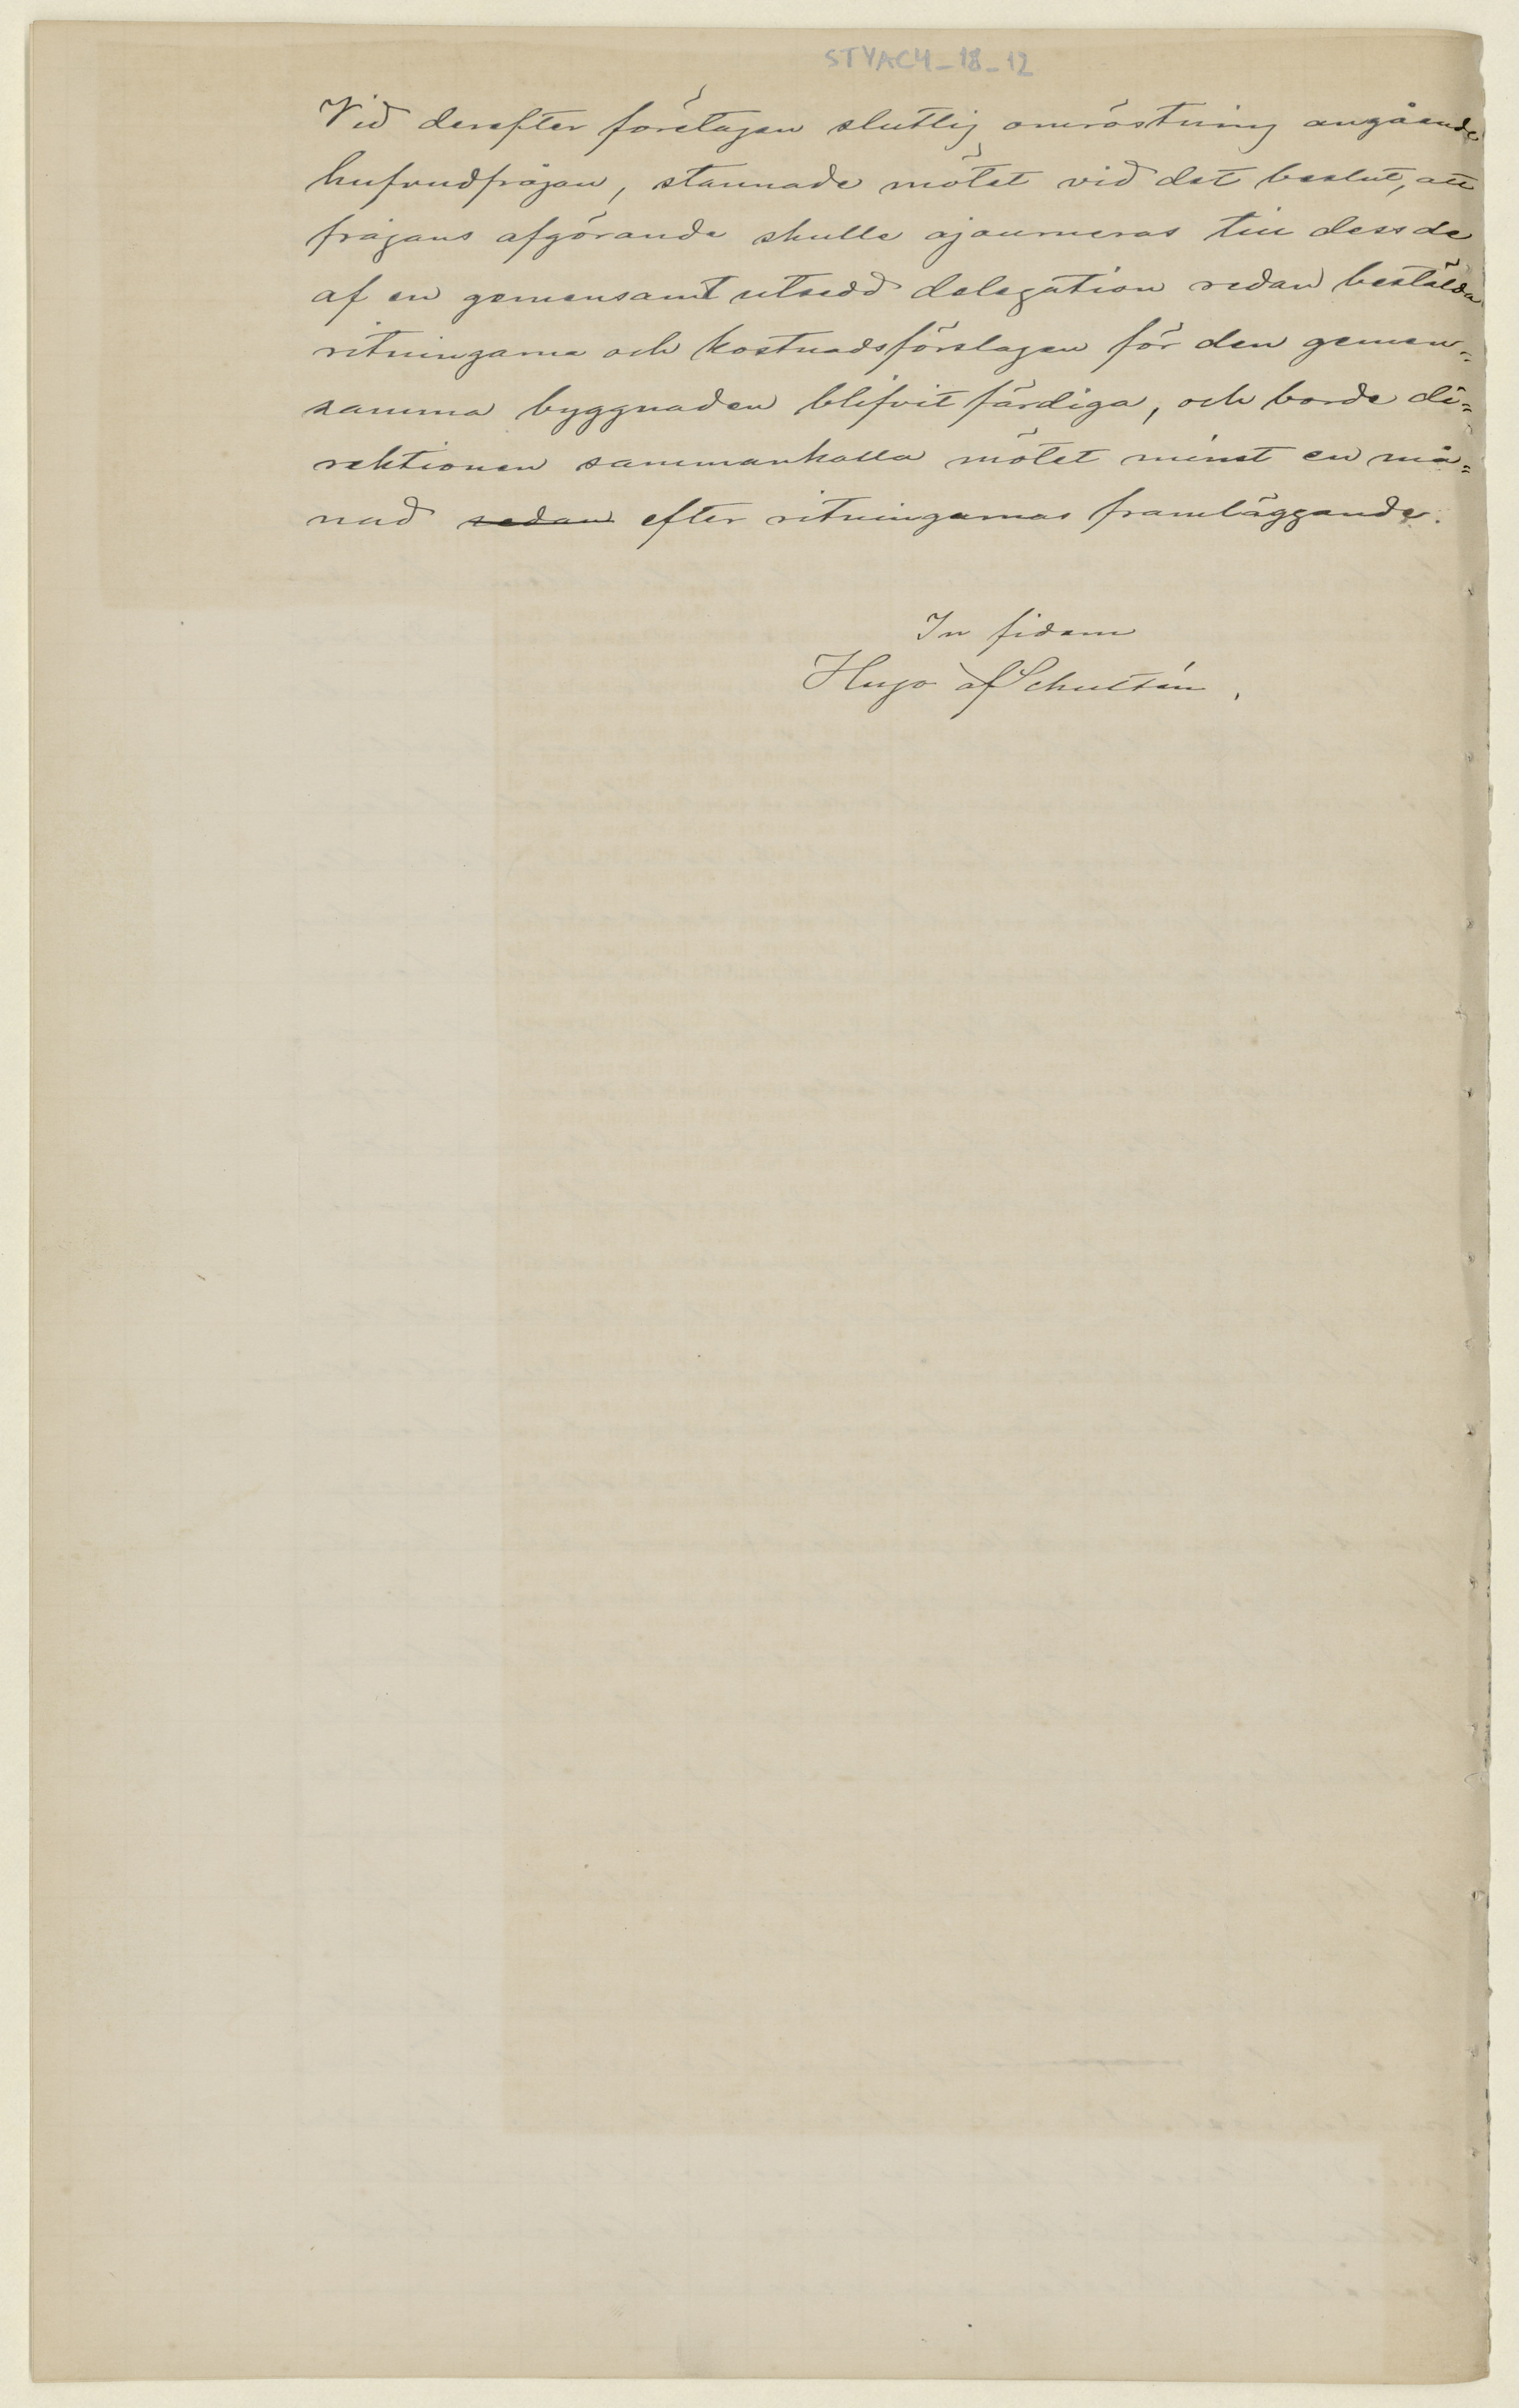 STYAC4_18_12
Vid derefter företagen slutlig omröstning angående
hufvudfrågan, stannade mötet vid det beslut, att
frågans afgörande skulle ajourneras till dess de
af en gemensamt utsedd delegation redan bestälda
ritningarna och kostnadsförslagen för den gemen=
samma byggnaden blifvit färdiga, och borde di=
rektionen sammankalla mötet minst en må=
nad sedan efter ritningarnas framläggande.
In fidem
Hugo af Schultén.